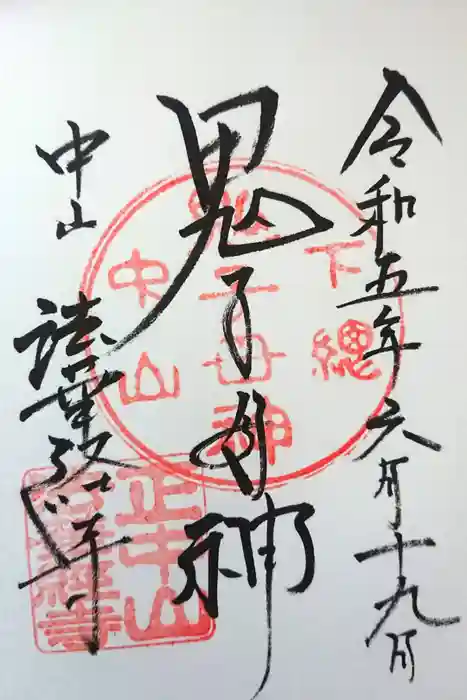 令和五年六月十九日
鬼子母神
中山
法華経寺
下総
中山
鬼子母神
正中山
法華経寺